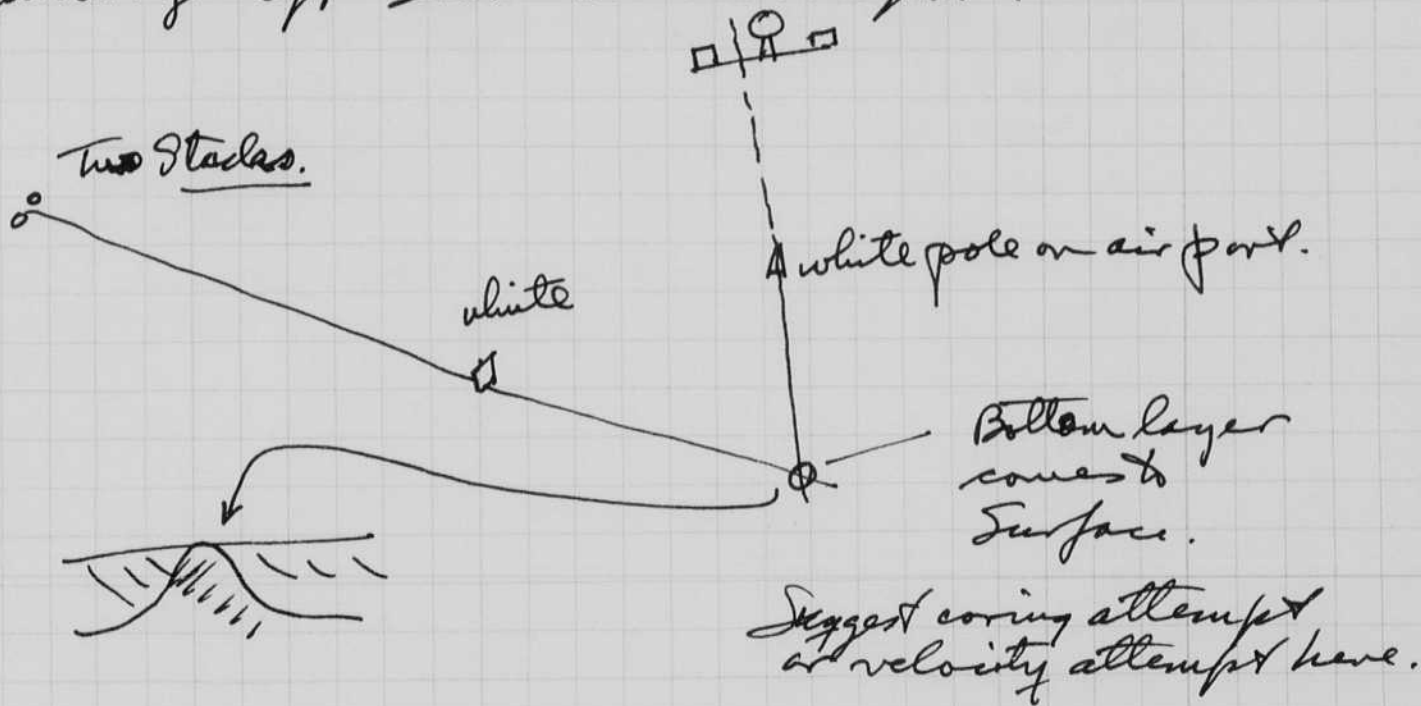 Two Stacks.
white pole on air port.
white
Bottom layer
comes to
Surface.
Suggest coring attempt
or velocity attempt here.